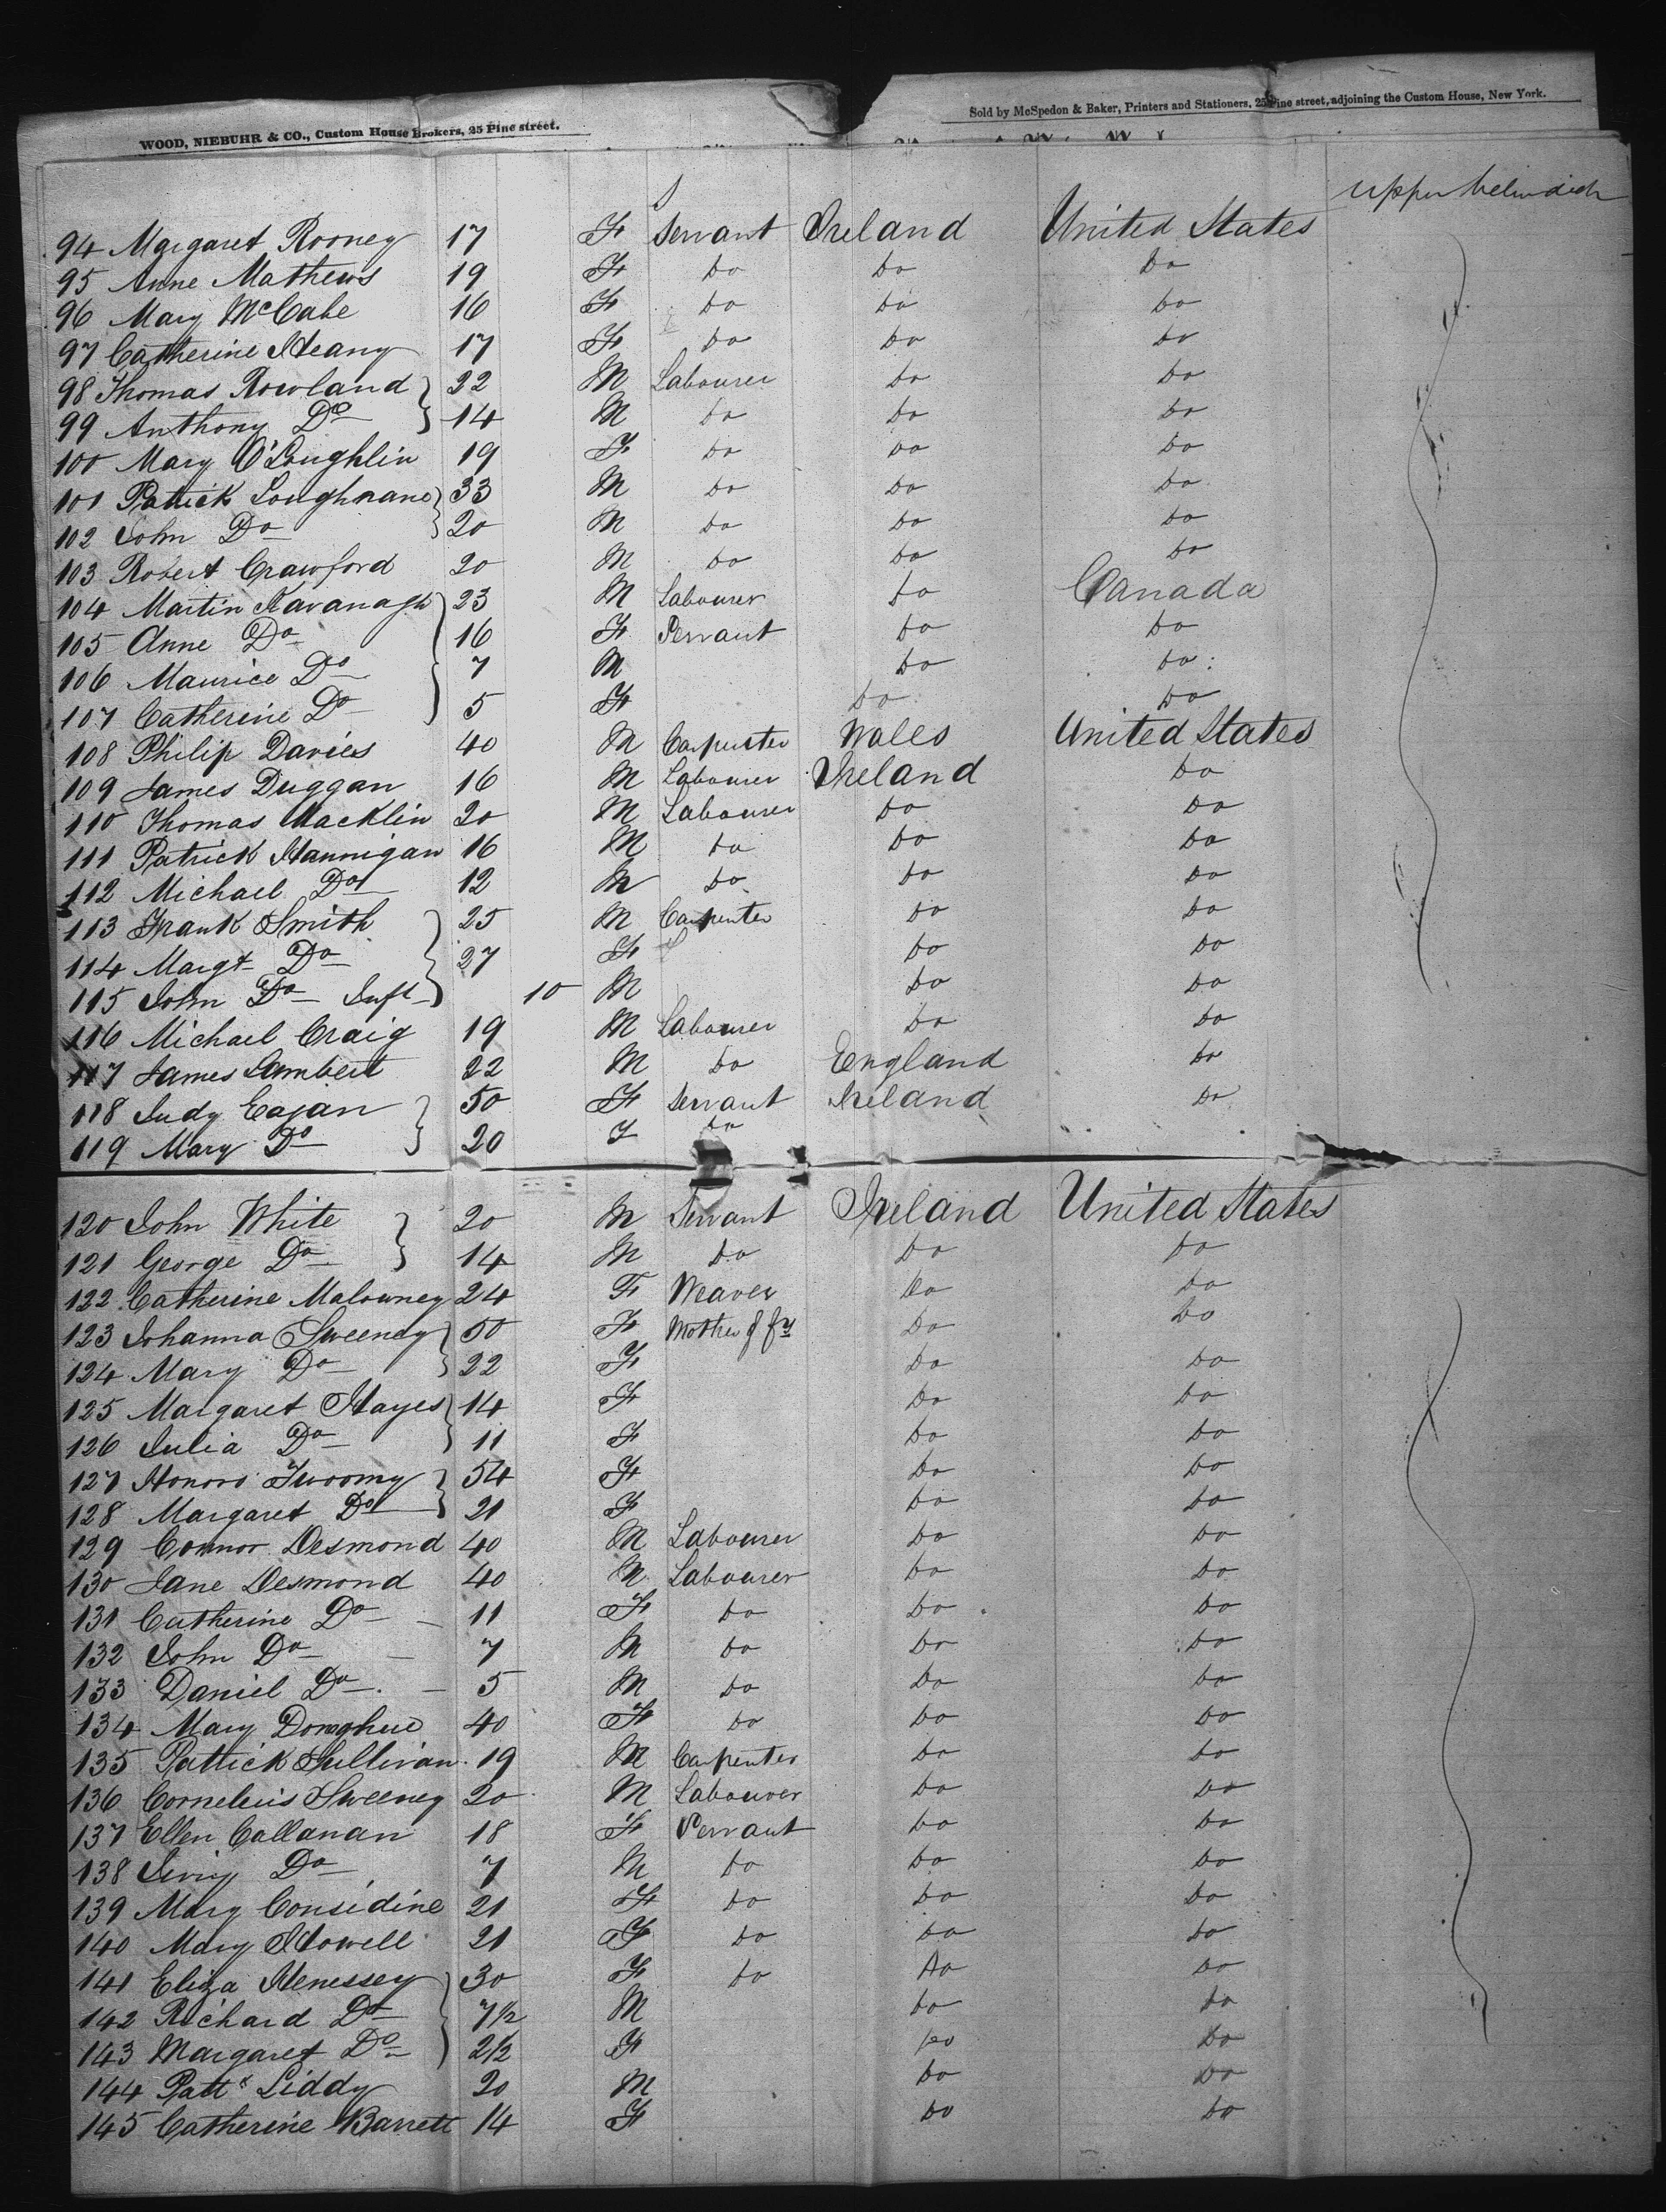 WOOD, NIEBUHR & CO., Custom House Brokers, 25 Pine street.
Sold by McSpedon & Baker, Printers and Stationers, 25 Pine street, adjoining the Custom House, New York.
upper
94 Margaret Rooney 17 F Servant Ireland United States
95 Anne Mathews 19 F Do Do Do
96 Mary McCabe 16 F Do Do Do
97 Catherine Heany 17 F Do Do Do
98 Thomas Rowland } 22 M Labourer Do Do
99 Anthony Do } 14 M Do Do Do
100 Mary O'Loughlin 19 F Do Do Do
101 Patrick Loughnane } 33 M Do Do Do
102 John Do } 20 M Do Do Do
103 Robert Crawford 20 M Do Do Do
104 Martin Kavanagh } 23 M Labourer Do Canada
105 Anne Do 16 F Servant Do Do
106 Maurice Do 7 M Do Do
107 Catherine Do } 5 F Do Do
108 Philip Davies 40 M Carpenter Wales United States
109 James Duggan 16 M Labourer Ireland Do
110 Thomas Macklin 20 M Labourer Do Do
111 Patrick Hannigan 16 M Do Do Do
112 Michael Do 12 M Do Do Do
113 Frank Smith } 25 M Carpenter Do Do
114 Margt Do 27 F Do Do
115 John Do Inft } 10 M Do Do
116 Michael Craig 19 M Labourer Do Do
117 James Lambert 22 M Do England Do
118 Judy Eagan } 50 F Servant Ireland Do
119 Mary Do } 20 F Do
120 John White } 20 M Servant Ireland United States
121 George Do } 14 M Do Do Do
122 Catherine Malowney 24 F Weaver Do Do
123 Johanna Sweeney } 50 F Mother of fy Do Do
124 Mary Do } 22 F Do Do
125 Margaret Hayes } 14 F Do Do
126 Julia Do } 11 F Do Do
127 Honoro Twoomy } 54 F Do Do
128 Margaret Do } 21 F Do Do
129 Connor Desmond 40 M Labourer Do Do
130 Jane Desmond 40 M Labourer Do Do
131 Catherine Do 11 F Do Do Do
132 John Do 7 M Do Do Do
133 Daniel Do 5 M Do Do Do
134 Mary Donoghue 40 F Do Do Do
135 Patrick Sullivan 19 M Carpenter Do Do
136 Cornelius Sweeney 20 M Labourer Do Do
137 Ellen Callanan 18 F Servant Do Do
138 Do 7 M Do Do Do
139 Mary Considine 21 F Do Do Do
140 Mary Howell 21 F Do Do Do
141 Eliza Henessey } 30 F Do Do Do
142 Richard Do 7 1/2 M Do Do
143 Margaret Do } 2 1/2 F Do Do
144 Pattk Liddy 20 M Do Do
145 Catherine Barrett 14 F Do Do